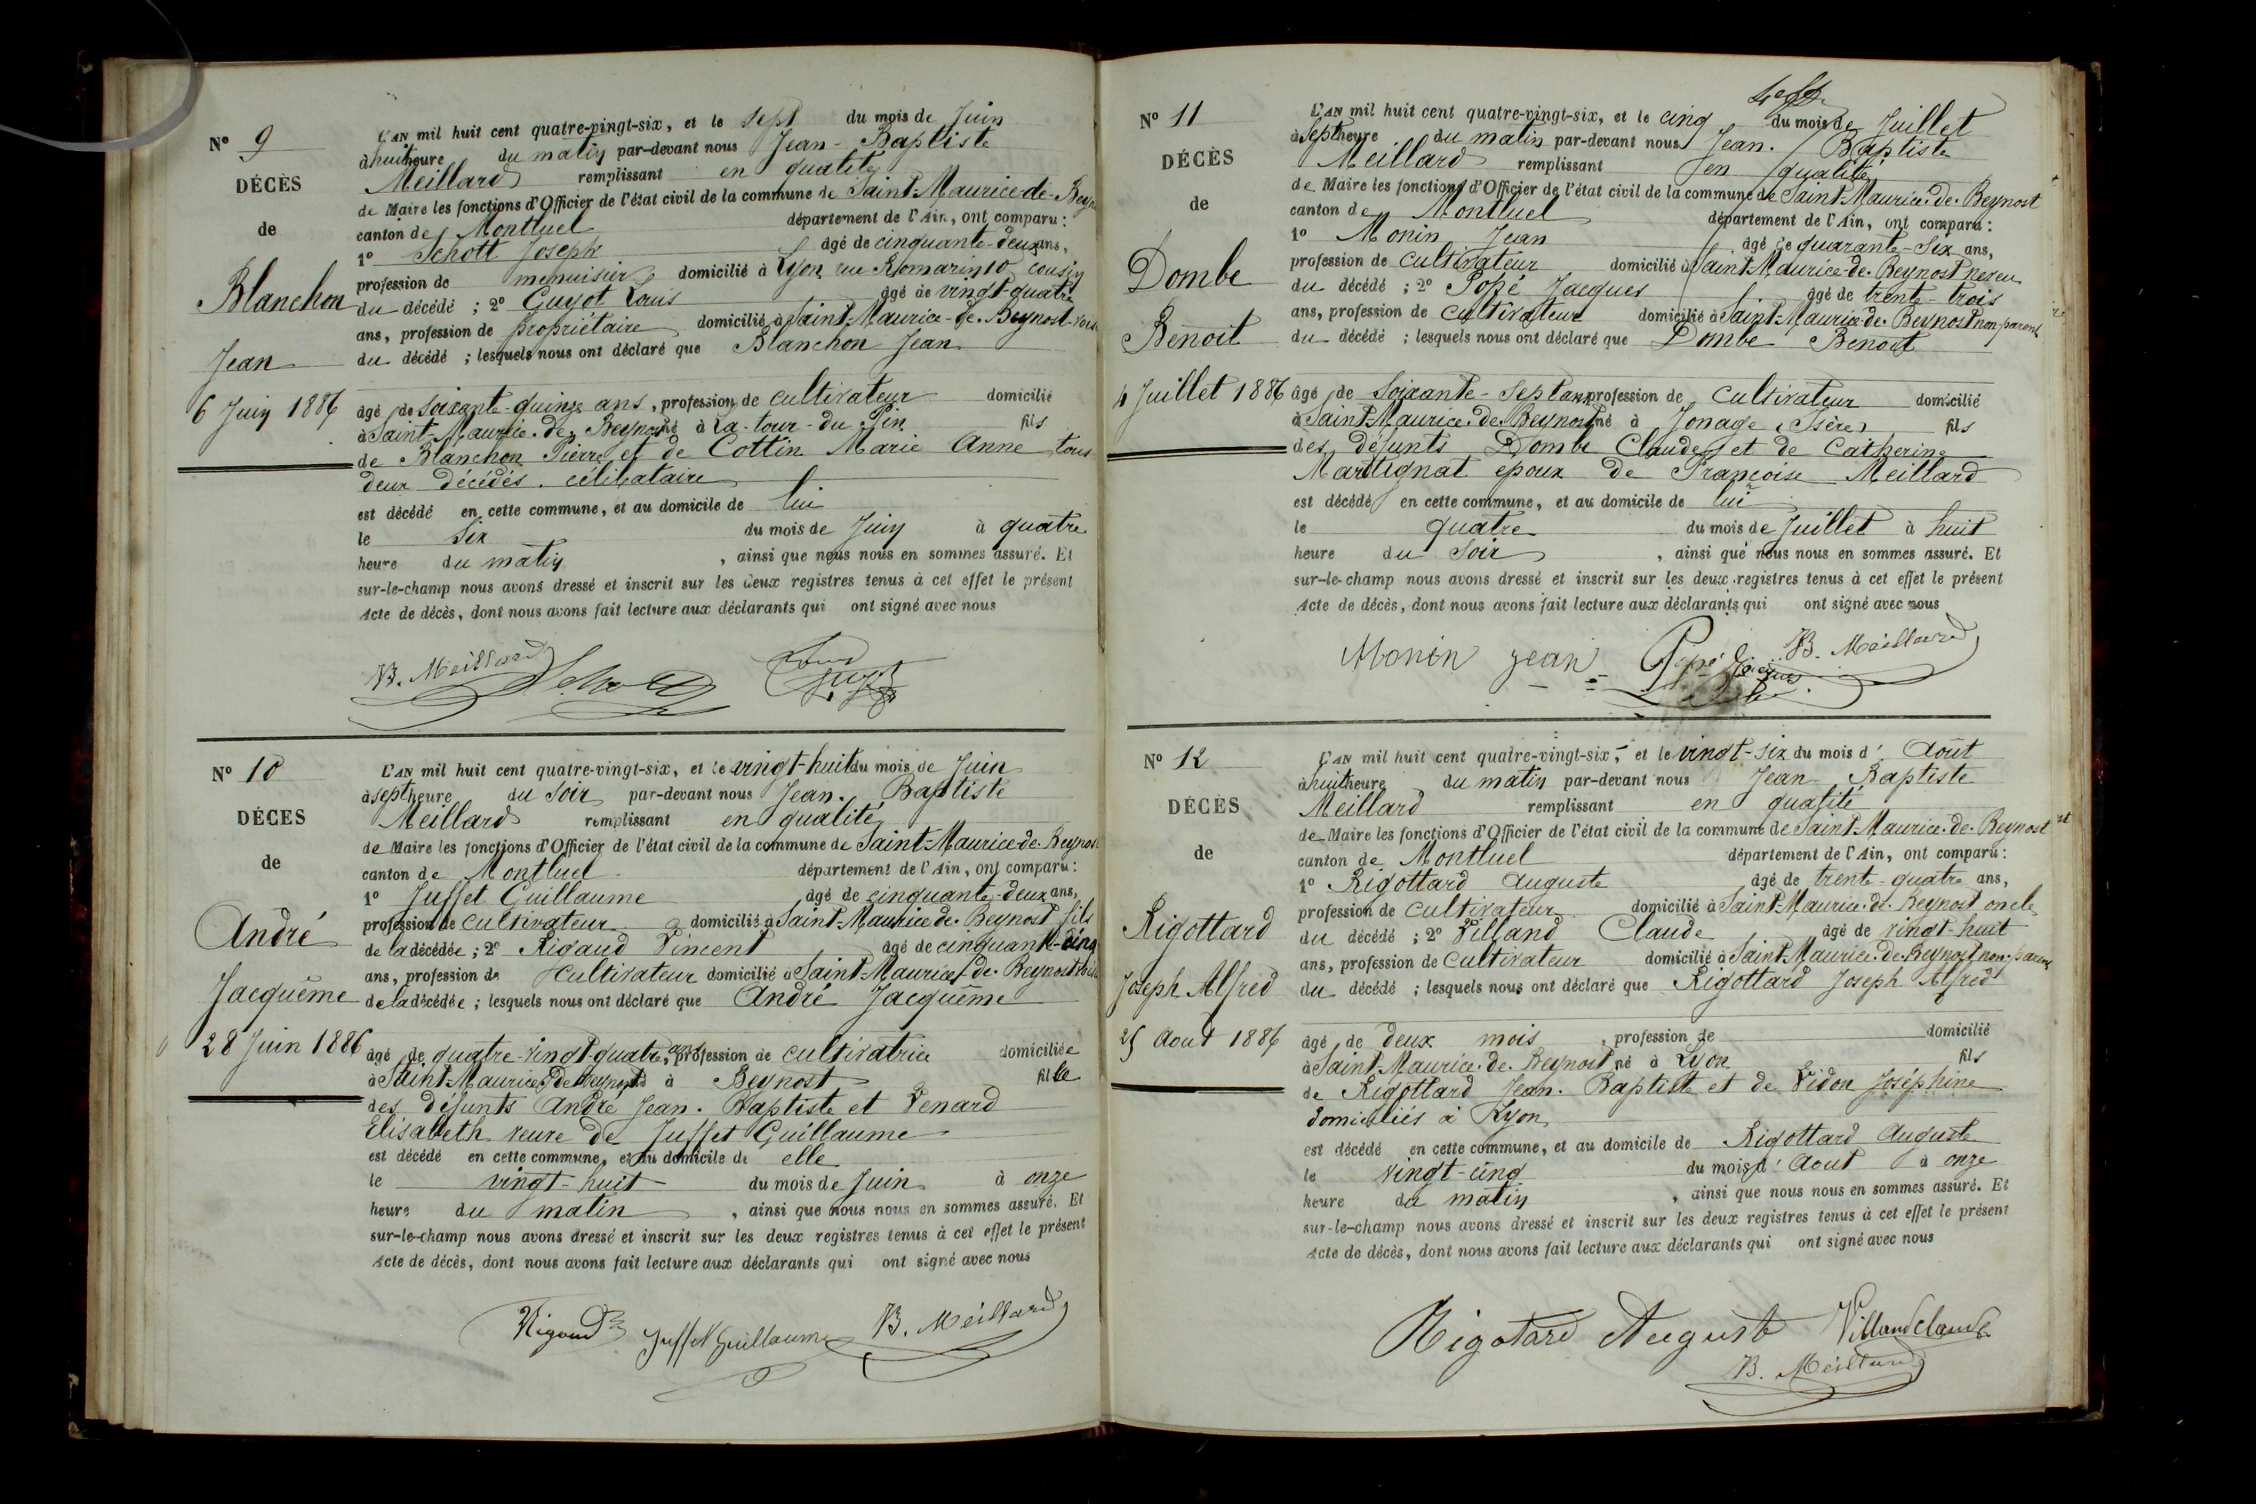 N° 9
DÉCÈS
de
Blanchon
Jean
6 Juin 1886
L'AN mil huit cent quatre-vingt-six, et le sept du mois de Juin
à huit heure du matin par-devant nous Jean-Baptiste
Meillard remplissant en qualité
de Maire les fonctions d'Officier de l'état civil de la commune de Saint-Maurice-de-Beyn
canton de Montluel département de l'Ain, ont comparu :
1° Schott Joseph âgé de cinquante-deux ans,
profession de menuisier domicilié à Lyon rue Romarin 10 cousin
du décédé ; 2° Guyot Louis âgé de vingt-quatre
ans, profession de propriétaire domicilié à Saint-Maurice-de-Beynost voisi
du décédé ; lesquels nous ont déclaré que Blanchon Jean
âgé de soixante-quinze ans, profession de cultivateur domicilié
à Saint-Maurice-de-Beynost né à La-tour-du-Pin fils
de Blanchon Pierre et de Cottin Marie Anne tous
deux décédés. célibataire
est décédé en cette commune, et au domicile de lui
le six du mois de Juin à quatre
heure du matin, ainsi que nous nous en sommes assuré. Et
sur-le-champ nous avons dressé et inscrit sur les deux registres tenus à cet effet le présent
Acte de décès, dont nous avons fait lecture aux déclarants qui ont signé avec nous
B. Meillard Schott Louis Guyot
N° 10
DÉCES
de
André
Jacquême
28 Juin 1886
L'AN mil huit cent quatre-vingt-six, et le vingt-huit du mois de Juin
à sept heure du soir par-devant nous Jean-Baptiste
Meillard remplissant en qualité
de Maire les fonctions d'Officier de l'état civil de la commune de Saint-Maurice-de-Beynos
canton de Montluel département de l'Ain, ont comparu :
1° Juffet Guillaume âgé de cinquante-deux ans,
profession de cultivateur domicilié à Saint-Maurice-de-Beynost fils
de la décédée ; 2° Rigaud Vincent âgé de cinquante-cinq
ans, profession de cultivateur domicilié à Saint-Maurice-de-Beynost
de la décédée ; lesquels nous ont déclaré que André Jacquême
âgé de quatre-vingt-quatre ans, profession de cultivatrice domiciliée
à Saint-Maurice-de-Beynost né à Beynost fille
des défunts André Jean-Baptiste et Venard
Elisabeth veuve de Juffet Guillaume
est décédé en cette commune, et au domicile de elle
le vingt-huit du mois de Juin à onze
heure du matin, ainsi que nous nous en sommes assuré. Et
sur-le-champ nous avons dressé et inscrit sur les deux registres tenus à cet effet le présent
Acte de décès, dont nous avons fait lecture aux déclarants qui ont signé avec nous
Rigaud Juffet Guillaume B. Meillard
N° 11
DÉCÈS
de
Dombe
Benoit
4 Juillet 1886
L'AN mil huit cent quatre-vingt-six, et le cinq du mois de Juillet
à sept heure du matin par-devant nous Jean-Baptiste
Meillard remplissant en qualité
de Maire les fonctions d'Officier de l'état civil de la commune de Saint-Maurice-de-Beynost
canton de Montluel département de l'Ain, ont comparu :
1° Monin Jean âgé de quarante-six ans,
profession de cultivateur domicilié à Saint-Maurice-de-Beynost neveu
du décédé ; 2° Popé Jacques âgé de trente-trois
ans, profession de cultivateur domicilié à Saint-Maurice-de-Beynost non-parent
du décédé ; lesquels nous ont déclaré que Dombe Benoit
âgé de soixante-sept ans, profession de cultivateur domicilié
à Saint-Maurice-de-Beynost né à Jonage (Isère) fils
des défunts Dombe Claude et de Catherine
Martignat époux de Françoise Meillard
est décédé en cette commune, et au domicile de lui
le quatre du mois de Juillet à huit
heure du soir, ainsi que nous nous en sommes assuré. Et
sur-le-champ nous avons dressé et inscrit sur les deux registres tenus à cet effet le présent
Acte de décès, dont nous avons fait lecture aux déclarants qui ont signé avec nous
Monin Jean Popé Jacques B. Meillard
N° 12
DÉCÈS
de
Rigottard
Joseph Alfred
25 Aout 1886
L'AN mil huit cent quatre-vingt-six, et le vingt-six du mois d' Août
à huit heure du matin par-devant nous Jean Baptiste
Meillard remplissant en qualité
de Maire les fonctions d'Officier de l'état civil de la commune de Saint-Maurice-de-Beynost
canton de Montluel département de l'Ain, ont comparu :
1° Rigottard Auguste âgé de trente-quatre ans,
profession de cultivateur domicilié à Saint-Maurice-de-Beynost oncle
du décédé ; 2° Villand Claude âgé de vingt-huit
ans, profession de cultivateur domicilié à Saint-Maurice-de-Beynost non-paren
du décédé ; lesquels nous ont déclaré que Rigottard Joseph Alfred
âgé de deux mois, profession de domicilié
à Saint-Maurice-de-Beynost né à Lyon fils
de Rigottard Jean-Baptiste et de Vidon Joséphine
domiciliés à Lyon
est décédé en cette commune, et au domicile de Rigottard Auguste
le vingt-cinq du mois d' Aout à onze
heure du matin, ainsi que nous nous en sommes assuré. Et
sur-le-champ nous avons dressé et inscrit sur les deux registres tenus à cet effet le présent
Acte de décès, dont nous avons fait lecture aux déclarants qui ont signé avec nous
Rigotard August Villand Claude
B. Meillard